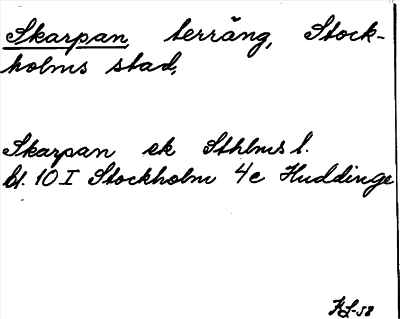 Skarpan, terräng, Stock-
holms stad,
Skarpan ek Sthlms l.
bl. 10 I Stockholm 4c Huddinge
HS-58